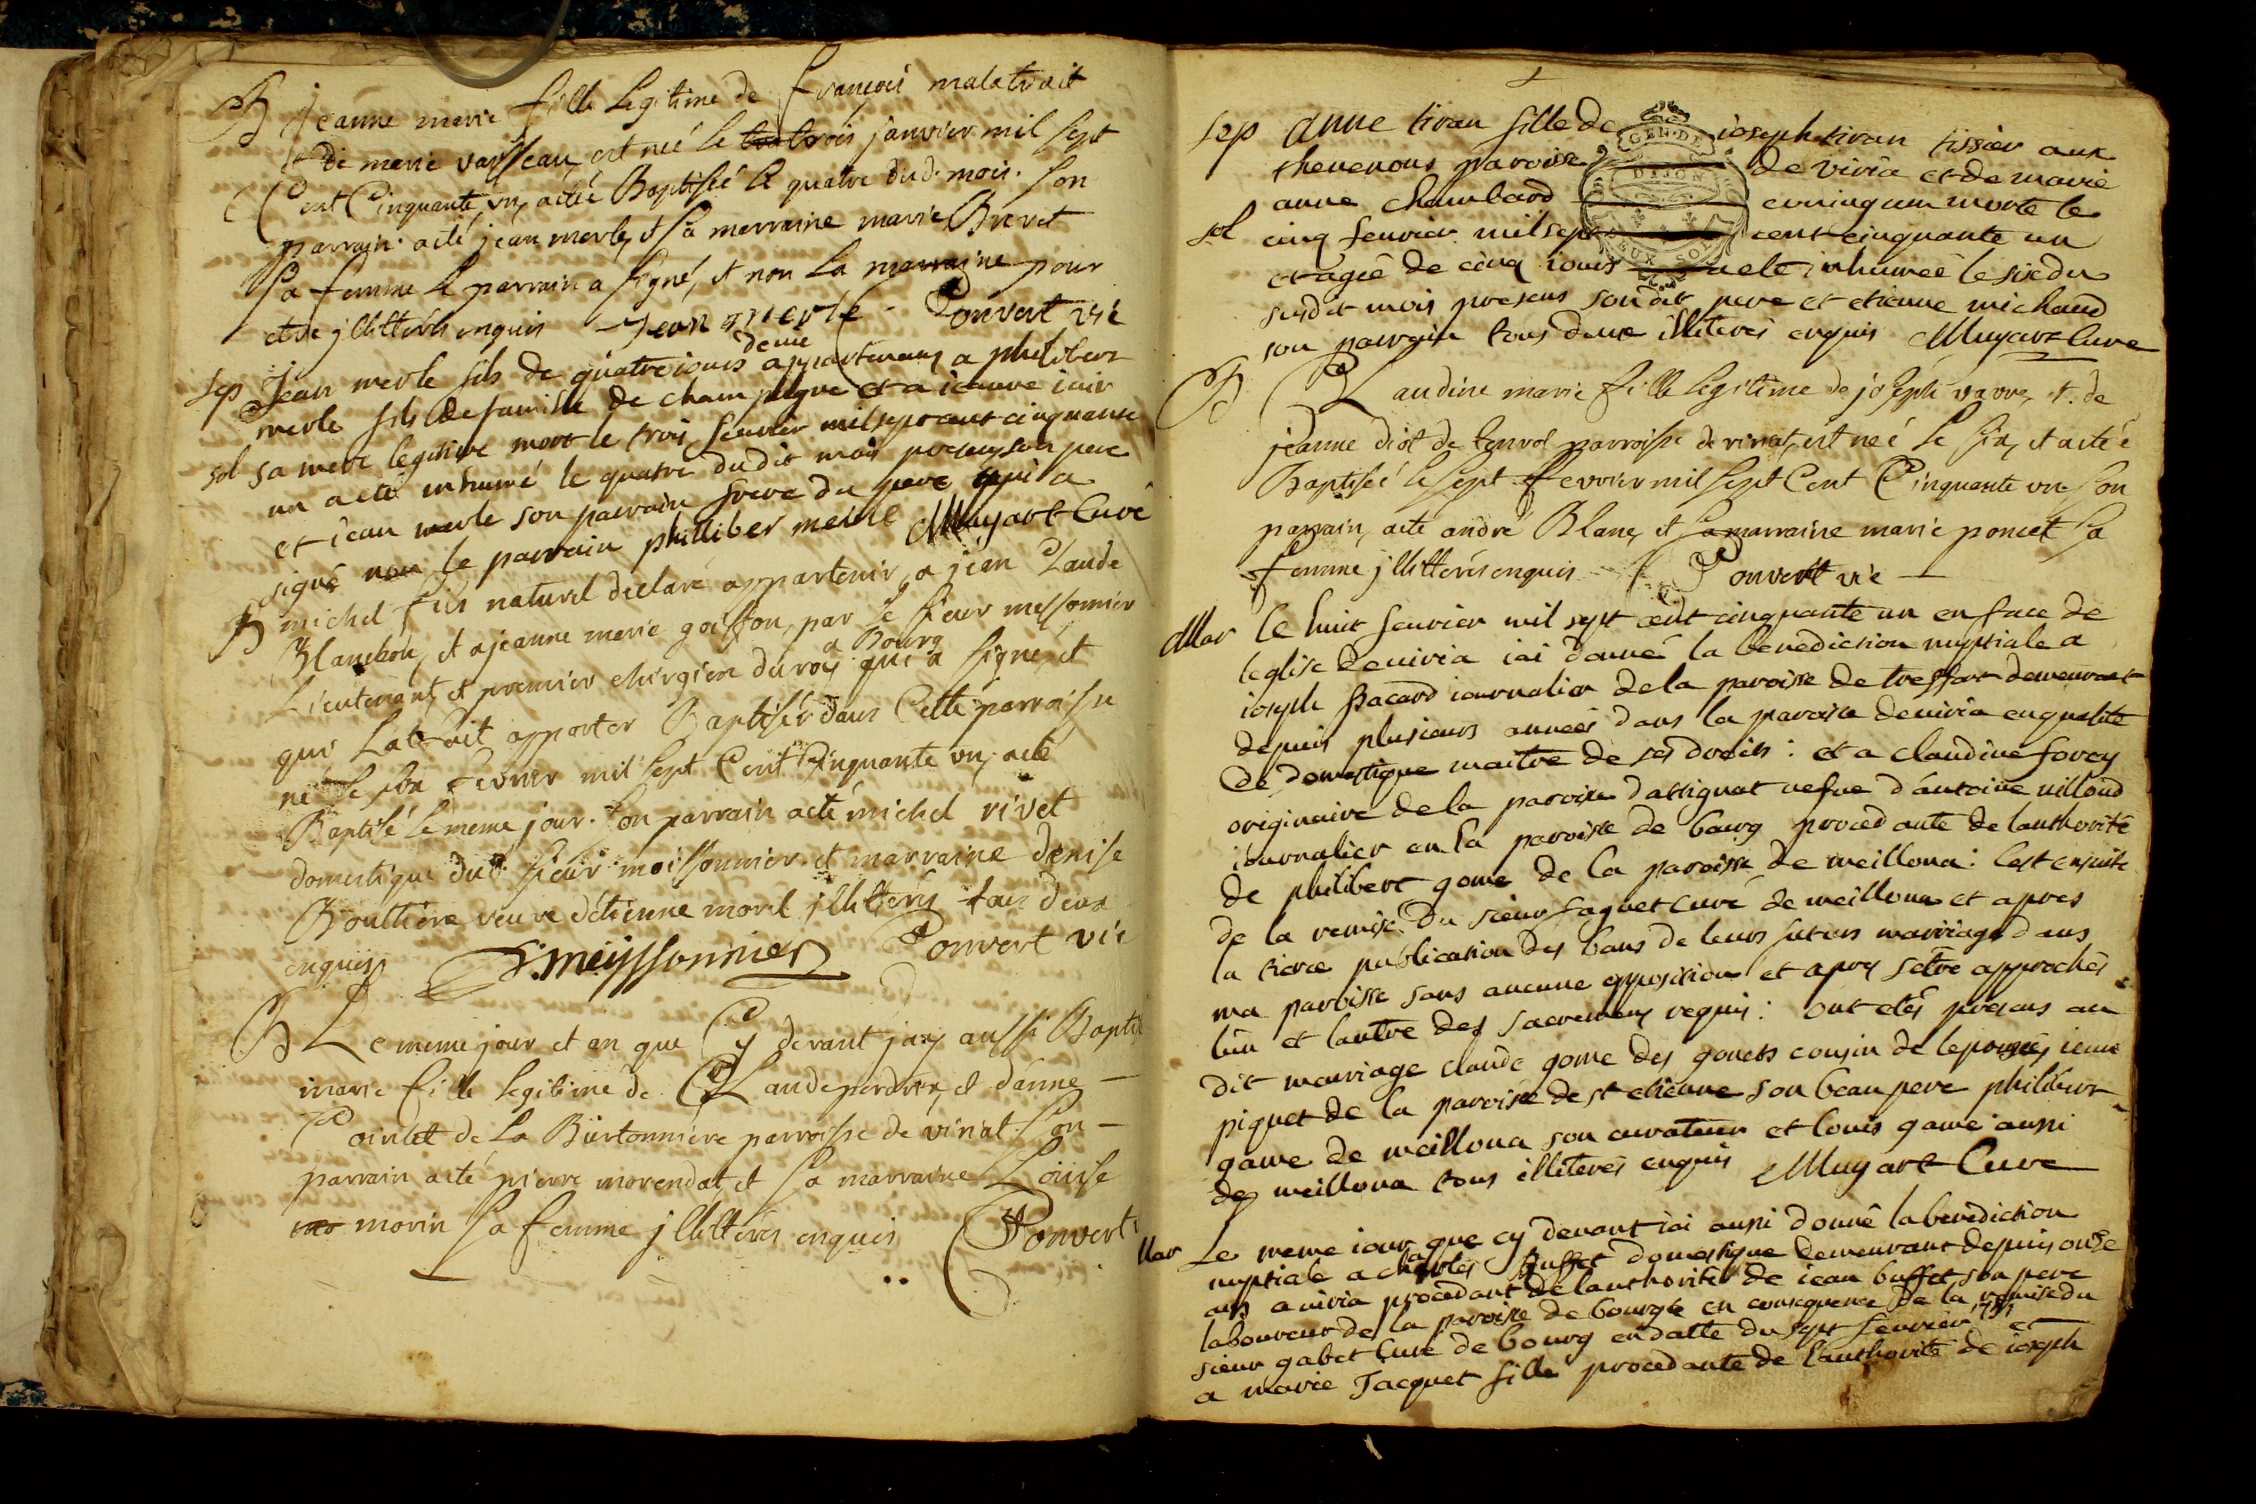 B Jeanne marie fille legitime de françois malatrait
et de marie vaisseau est née le trois janvier mil sept
Cent Cinquante un, a été Baptisée le quatre dud. mois. Son
parrain a été jean merle, et sa marraine marie Brevet
sa femme le parrain a signé, et non la marraine pour
etre jllittérés enquis Jean merle Ponvert vic
demi
sep Jean merle fils de quatre jours appartenant a philibert
merle fils de famille de champagne et a jeanne
sol sa mere legitime mort le trois fevrier mil sept cent cinquante
un a eté inhumé le quatre dudit mois presens son pere
et jean merle son parrain frere du pere qui a
signé non le parrain philliber merle Muyart Curé
B michel fils naturel déclaré appartenir a jean Claude
Blanchon, et a jeanne marie goiffon, par le sieur meissonnier
a Bourg
Lieutenant, et premier chirgien du roy qui a signé, et
qui La fait apporter Baptiser dans Cette parroisse
né le six fevrier mil sept Cent Cinquante un, a été
Baptisé le meme jour. Son parrain a été michel rivet
domestique dud. sieur moissonnier et marraine denise
Bouttiere veuve détienne morel jllittérés tous deux
enquis Smeyssonnier Ponvert vic
B Le meme jour et an que Cy devant jay aussi Baptisé
marie fille legitime de Claude perdrix, et d'anne
Pointet de La Burtonniere parroisse de viriat Son
parrain a été pierre morendat et sa marraine Louise
mo morin sa femme jllittérés enquis Ponvert
sep anne tiran fille de joseph tiran tissier aux
GEN. DE DIJON
thevenous paroisse de viria et de marie
anne chambard conjugum morte le
sol cinq fevrier mil sept cent cinquante un
et agée de cinq jours a eté inhumeé le six du
susdit mois presens son dit pere et etienne michaud
son parrain tous deux illiterés enquis Muyart Cure
B Claudine marie fille legitime de joseph varre, et de
jeanne diot de parroisse de viriat, est neé le six, et a etéé
Baptiseé le sept fevrier mil sept Cent Cinquante un son
parrain, a eté andré Blanc, et sa marraine marie poncet sa
femme jllittérés enquis Ponvert vic
Mar le huit fevrier mil sept cent cinquante un en face de
leglise de viria jai donné la benediction nuptiale a
joseph pacard journalier de la paroisse de treffort demeurant
depuis plusieurs années dans la paroisse de viria en qualité
de domestique maitre de ses droits : et a claudine forey
originaire de la paroisse dattignat vefve d'antoine villoud
journalier en la paroisse de bourg procedante de lauthorité
de philibert gome de la paroisse de meillona : cest ensuite
de la remise du sieur faguet curé de meillona et apres
la tierce publication des bans de leurs futurs marriage dans
ma paroisse sans aucune opposition et apres setre approchés
lun et lautre des sacremens requis : ont etés presens au
dit marriage claude gome des gonets cousin de lepouse, jean
piquet de la paroisse de st etienne son beau pere philibert
game de meillona son curateur et louis game aussi
de meillona tous illiterés enquis Muyart Cure
Mar Le meme jour que cy devant jai aussi donné la benediction
nuptiale a charles Buffet domestique demeurant depuis onze
ans a viria procedant de lauthorité de jean buffet son pere
laboureur de la paroisse de bourg en consequence de la remise du
sieur gabet Curé de bourg en datte du sept fevrier 1751 et
a marie Jacquet fille procedante de l'authorité de joseph